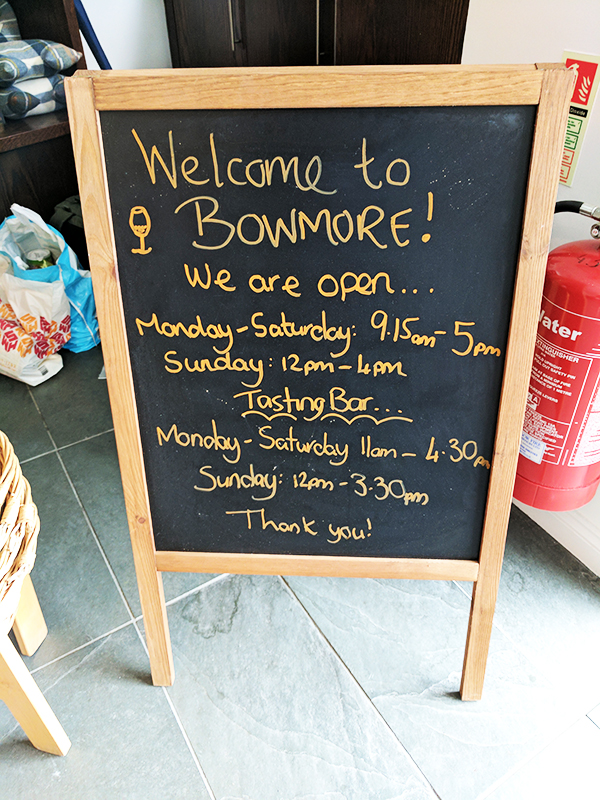 Welcome to
BOWMORE!
We are open...
Monday-Saturday: 9.15am-5pm
Sunday: 12pm-4pm
Tasting Bar...
Monday-Saturday 11am-4.30pm
Sunday: 12pm-3.30pm
Thank you!
Water
EXTINGUISHER